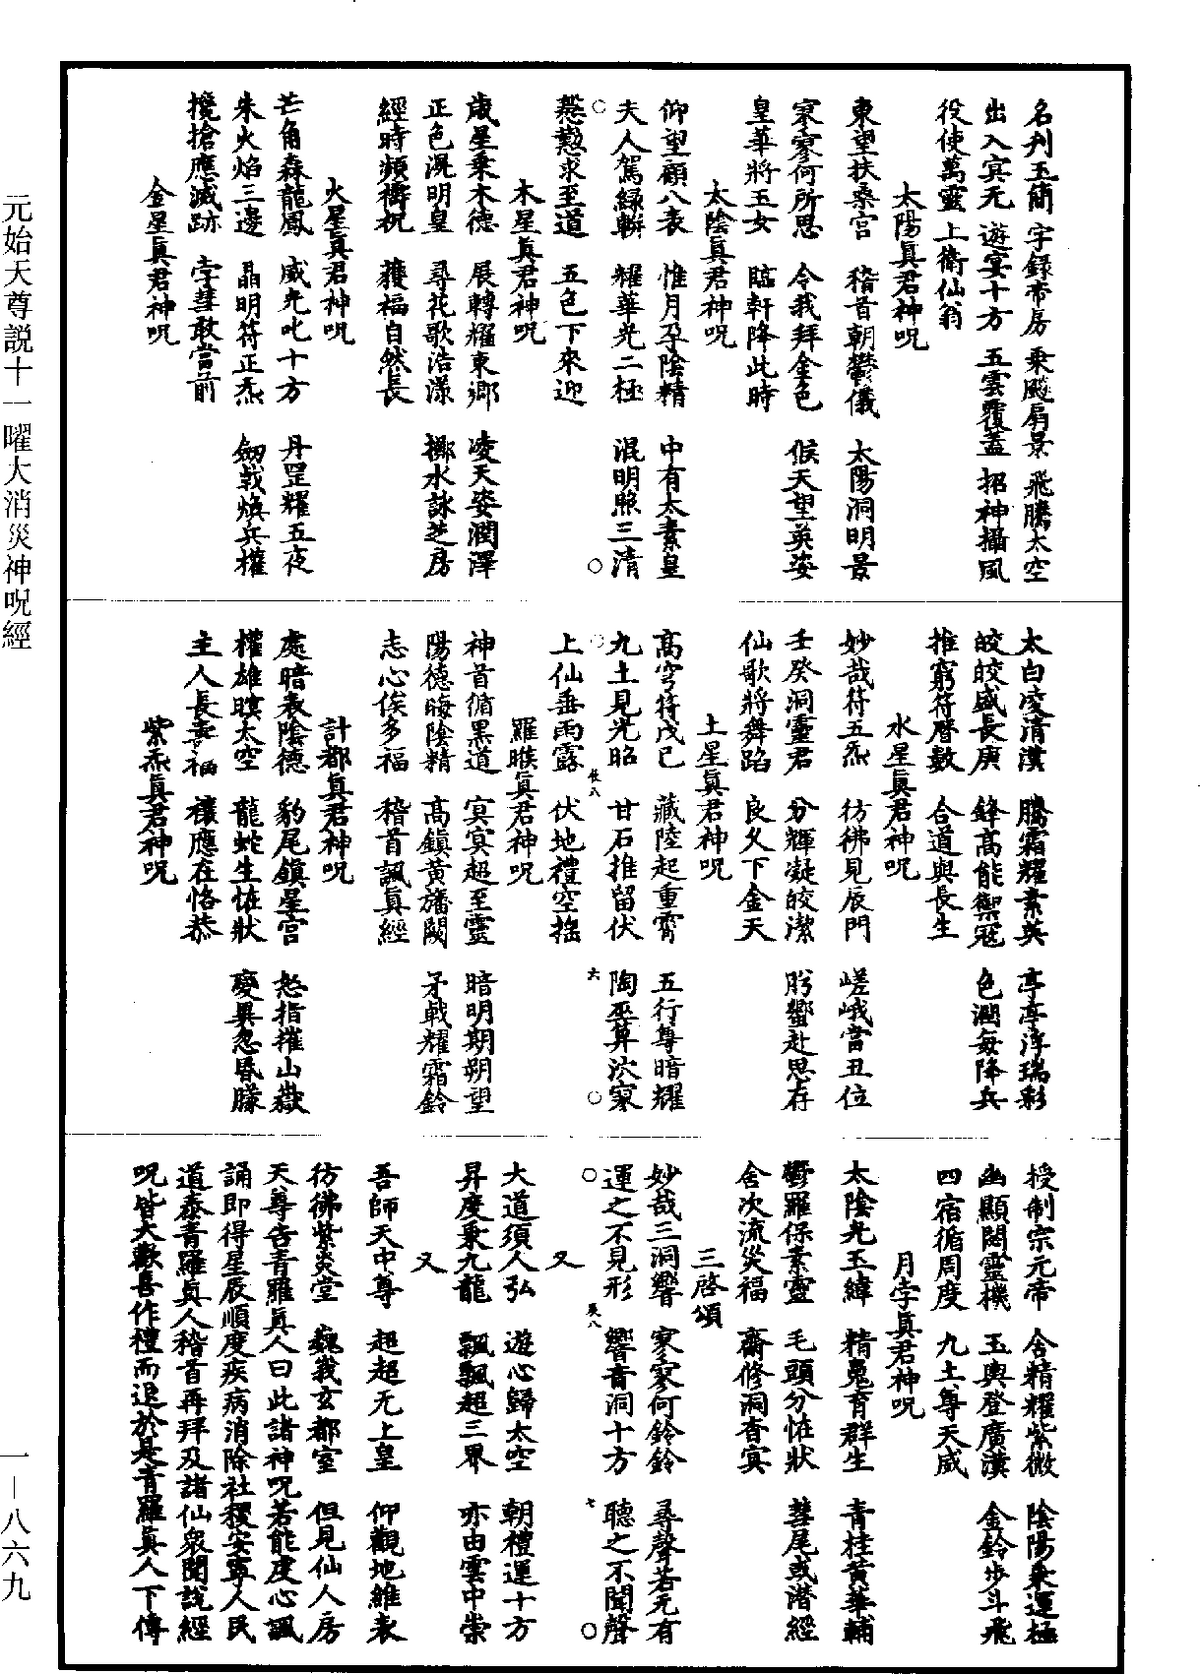 名刋玉簡 字錄帝房 乗飈扇景 飛騰太空
出入㝠无 遊宴十方 五雲覆蓋 招神攝風
役使萬靈 上衛仙翁
太陽眞君神呪
東望扶桑宫 稽首朝鬱儀 太陽洞明景
寂寥何所思 令我拜金色 候天望英姿
皇華將玉女 臨軒降此時
太陰眞君神呪
仰望顧八表 惟月孕陰精 中有太素皇
夫人駕綠軿 耀華光二極 混明照三清
○ ○
懃懃求至道 五色下來迎
木星眞君神呪
歲星乗木德 展轉耀東鄉 凌天姿潤澤
正色混明皇 尋花歌浩漾 擲水詠芝房
經時頻禱祝 獲福自然長
火星眞君神呪
芒角森龍鳳 威光叱十方 丹罡耀五夜
朱火焰三邊 晶明符正炁 劒戟煥兵權
攙搶應滅跡 孛彗敢當前
金星眞君神呪
太白凌清漢 騰霜耀素英 亭亭浮瑞彩
皎皎盛長庚 鋒高能禦冦 色潤每降兵
推窮符曆數 合道與長生
水星眞君神呪
妙哉符五炁 彷彿見辰門 嵯峨當丑位
壬癸洞靈君 分輝凝皎潔 肹蠁赴思存
仙歌將舞蹈 良久下金天
土星眞君神呪
高穹符戊巳 藏陸起重霄 五行尊暗耀
九土見光昭 甘石推留伏 陶巫算泬寥
○ 辰八 六 ○
上仙垂雨露 伏地禮空揺
羅睺眞君神呪
神首循黒道 㝠㝠超至靈 暗明期朔望
陽德晦陰精 高鎭黄旛闕 矛戟耀霜鈴
志心俟多福 稽首諷眞經
計都眞君神呪
處暗表陰德 豹尾鎭星宫 怒指摧山嶽
權雄暎太空 龍蛇生恠狀 變異忽昏朦
主人長壽福 禳應在恪恭
紫炁眞君神呪
授制宗元帝 含精耀紫微 陰陽乗運極
幽顯闊靈機 玉輿登廣漢 金鈴步斗飛
四宿循周度 九土尊天威
月孛眞君神呪
太陰光玉緯 精魄育群生 青桂黄華輔
鬱羅保素靈 毛頭分恠狀 彗尾或潜經
舍次流災福 齋修洞杳㝠
三啓頌
妙哉三洞響 寂寥何鈴鈴 尋聲若无有
運之不見形 響音洞十方 聽之不聞聲
○ 辰八 七 ○
又
大道須人弘 遊心歸太空 朝禮運十方
昇度乗九龍 飄飄超三界 亦由雲中崇
又
吾師天中尊 超超无上皇 仰觀地維表
彷彿紫炎堂 巍峩玄都室 但見仙人房
天尊告青羅眞人曰此諸神呪若能虔心諷
誦即得星辰順度疾病消除社稷安寧人民
道泰青羅眞人稽首再拜及諸仙衆聞說經
呪皆大歡喜作禮而退於是青羅眞人下傳
元始天尊説十一曜大消災神呪經
一—八六九